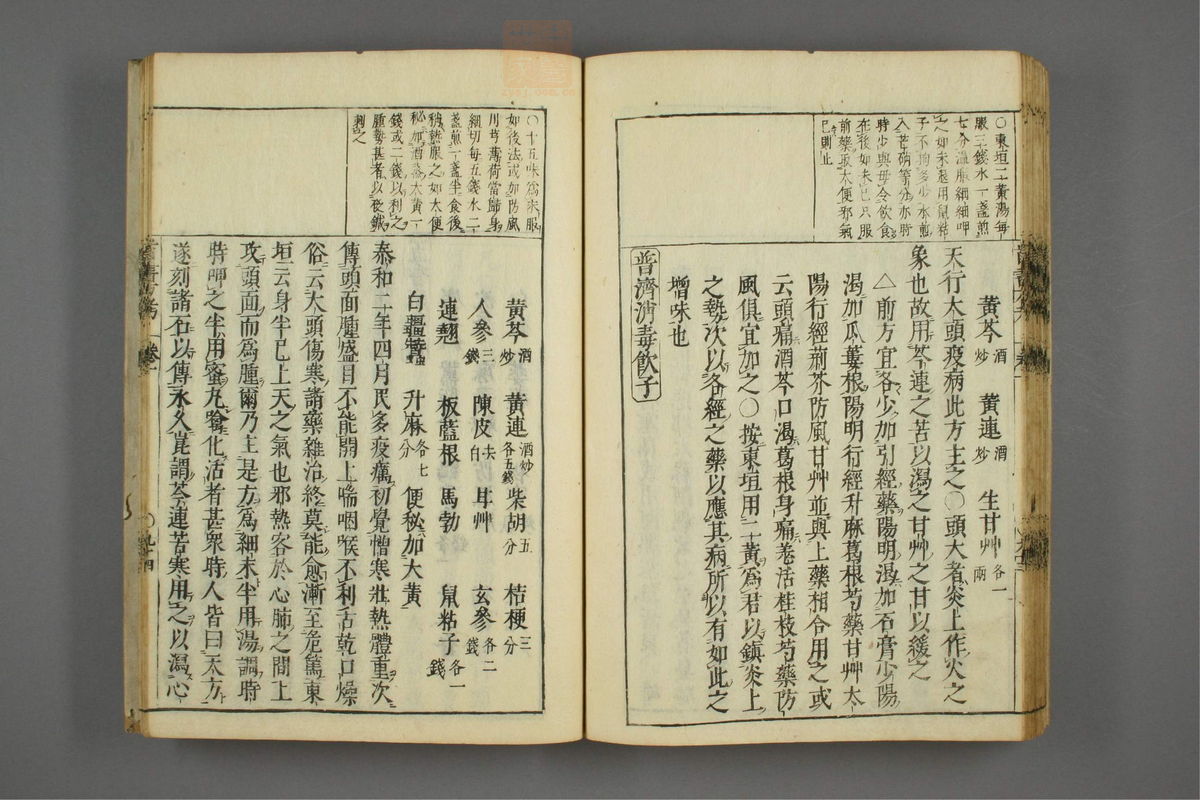 ○東垣二黃湯每
服三錢水一盞煎
七分溫服細細呷
之如未退用鼠粘
子不拘多少水煎
入芒硝等分亦時
時少與毋令飲食
在後如未已只服
前藥取大便邪氣
已則止
黃芩酒炒 黃連酒炒 生甘艸各一兩
天行大頭疫病此方主之○頭大者炎上作火之
象也故用芩連之苦以瀉之甘艸之甘以緩之
△前方宜各少加引經藥陽明渴加石膏少陽
渴加瓜蔞根陽明行經升麻葛根芍藥甘艸太
陽行經荊芥防風甘艸並與上藥相合用之或
云頭痛酒芩口渴葛根身痛羌活桂枝芍藥防
風俱宜加之○按東垣用二黃為君以鎮炎上
之熱次以各經之藥以應其病所以有如此之
增味也
普濟消毒飲子
○十五味為末服
如後法或加防風
川芎薄荷當歸身
細切每五錢水二
盞煎一盞坐食後
稍熱服之如大便
秘加酒蒸大黃一
錢或二錢以利之
腫勢甚者以砭鍼
刺之
黃芩酒炒 黃連酒炒各五錢 柴胡五分 桔梗三分
人參三錢 陳皮去白 甘艸 玄參各二錢
連翹 板藍根 馬勃 鼠粘子各一錢
白殭蠶 升麻各七分 便秘加大黃
泰和二年四月民多疫癘初覺憎寒壯熱體重次
傳頭面腫盛目不能開上喘咽喉不利舌乾口燥
俗云大頭傷寒諸藥雜治終莫能愈漸至危篤東
垣云身半已上天之氣也邪熱客於心肺之間上
攻頭面而為腫爾乃主是方為細末半用湯調時
時呷之半用蜜丸噙化活者甚眾時人皆曰天方
遂刻諸石以傳永久崑謂芩連苦寒用之以瀉心